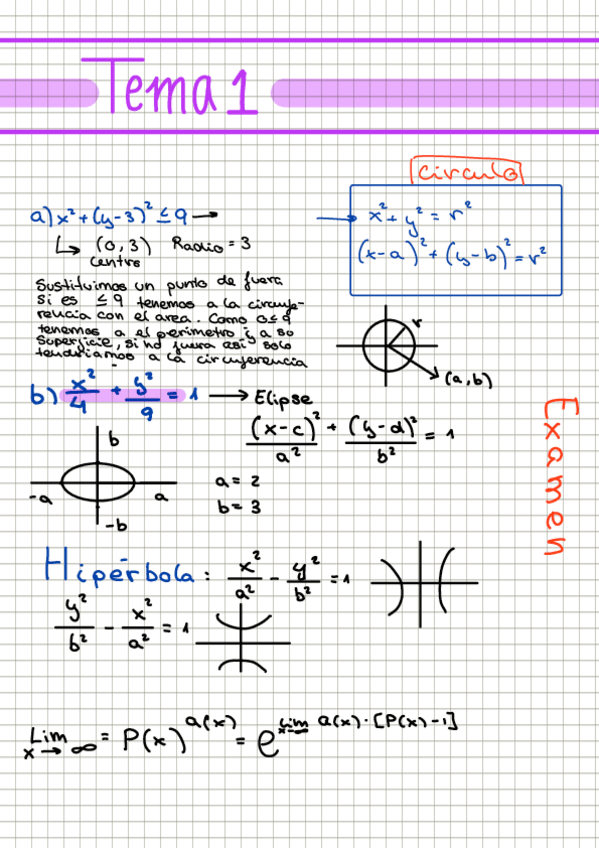 Tema 1
circulo
a) x² + (y-3)² ≤ 9 →
→ x² + y² = r²
(x-a)² + (y-b)² = r²
↳ (0,3) Radio = 3
centro
Sustituimos un punto de fuera
si es ≤ 9 tenemos a la circunfe-
rencia con el area. Como 0≤9
tenemos a el perimetro y a su
superficie, si no fuera asi solo
tendriamos a la circunferencia
r
(a,b)
b) x²/4 + y²/9 = 1 → Elipse
(x-c)²/a² + (y-d)²/b² = 1
b
-a a
-b
a = 2
b = 3
Examen
Hipérbola: x²/a² - y²/b² = 1
y²/b² - x²/a² = 1
Lim x→∞ = P(x)^a(x) = e^lim x→∞ a(x)·[P(x)-1]